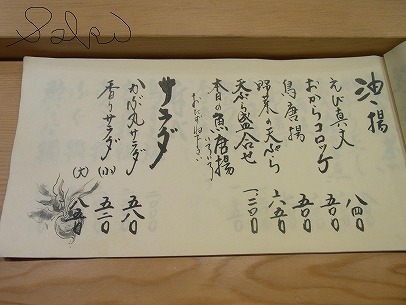 油揚
えび真丈 八四〇
おからコロッケ 五〇〇
鳥唐揚 五〇〇
野菜の天ぷら 六五〇
天ぷら盛合せ 一、三〇〇
本日の魚唐揚 いろいろ
おたずね下さい
サラダ
かぶ丸サラダ 五八〇
香りサラダ (小) 五二〇
(大) 八五〇